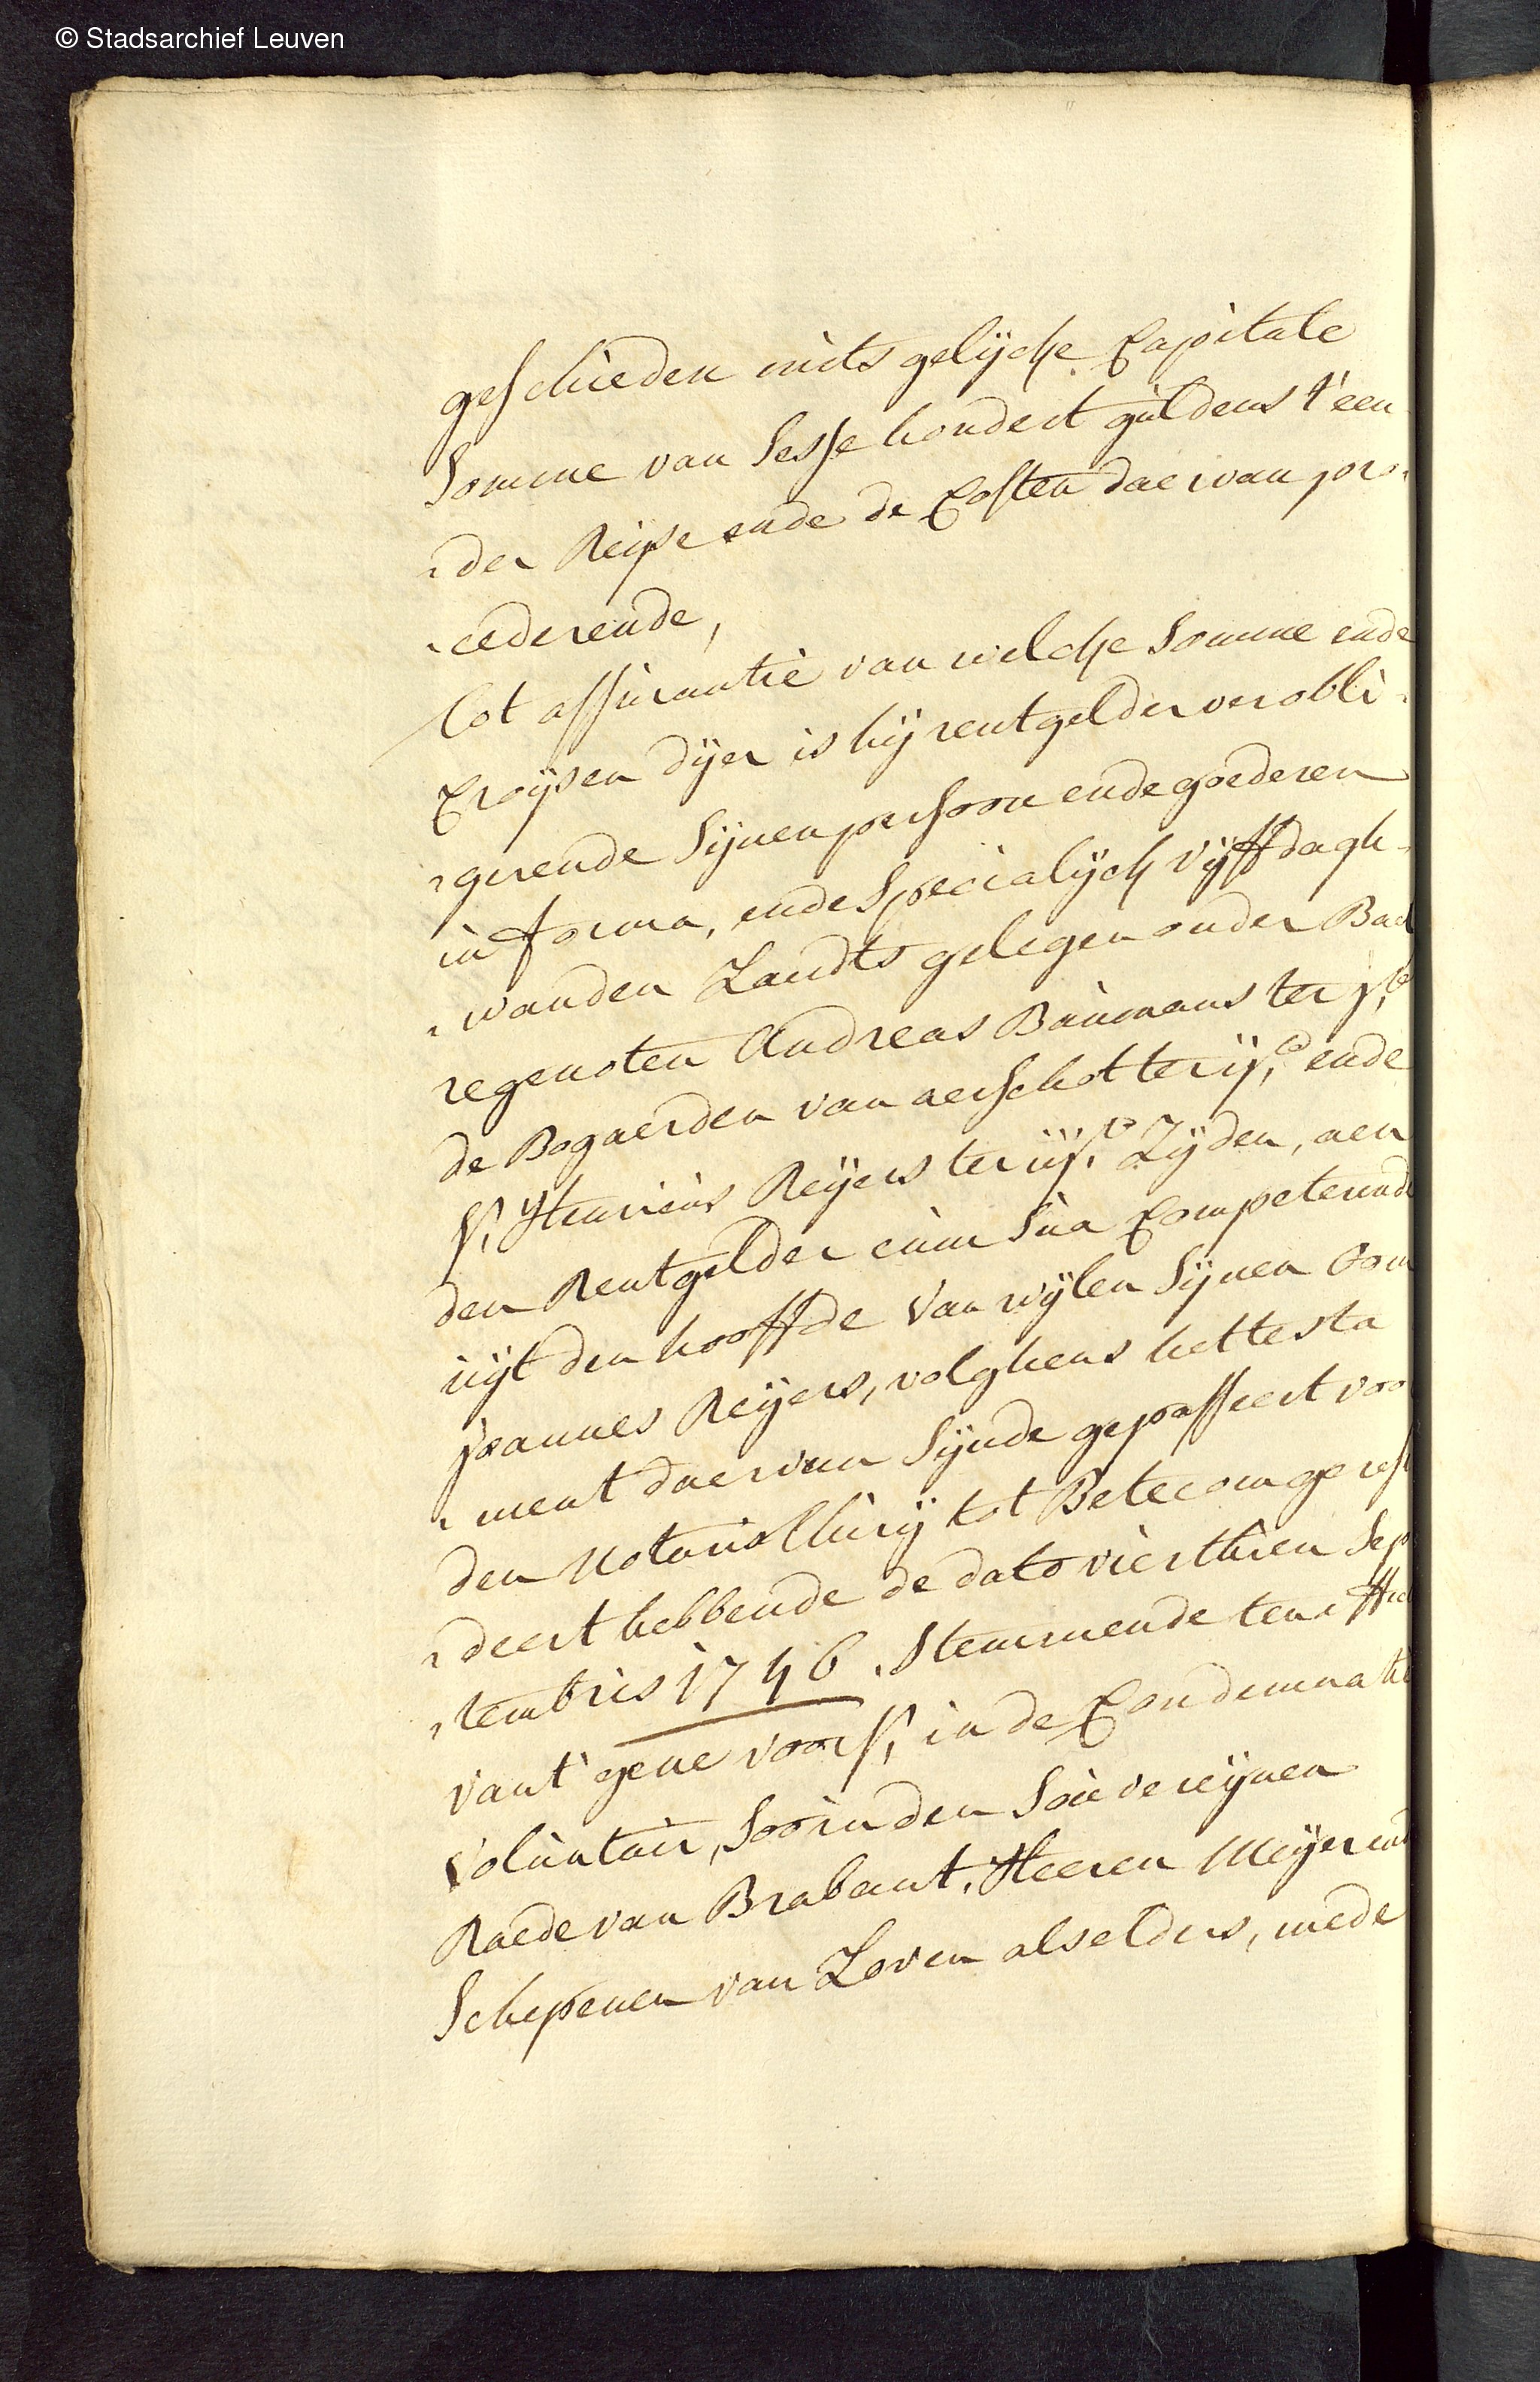 © Stadsarchief Leuven
geschieden mits gelijcke Capitale
Somme van Sesse hondert guldens t'een
der Reijse ende de Costen daervan pro-
cederende,
Tot assurantie van welcke Somme ende
Croijsen dijer is hij rentgelder verobli-
gerende Sijnen persoon ende goederen
in forma, ende Specialijck vijff dagh-
wanden Landts gelegen onder Bad
regenoten Andreas Baumans ter j,e
de Bogaerden van aerschot ter ij,e ende
S, Henricus Reijers ter iij,e Zijden, aen
den Rentgelder cum sua Competerende
uijt den hooffde van wijlen Sijnen Oom
joannes Reijers, volghens het testa
ment daervan Sijnde gepasseert voo
den Notaris Chirij tot Betecom geresi
deert hebbende de dato vierthien Sep
tembris 1746. Stemmende ten effec
vant' gene voors, in de Condemnatie
Voluntair, Soo in den Souvereijnen
Raede van Brabant, Heeren Meijer end
Schepenen van Loven als elders, mede